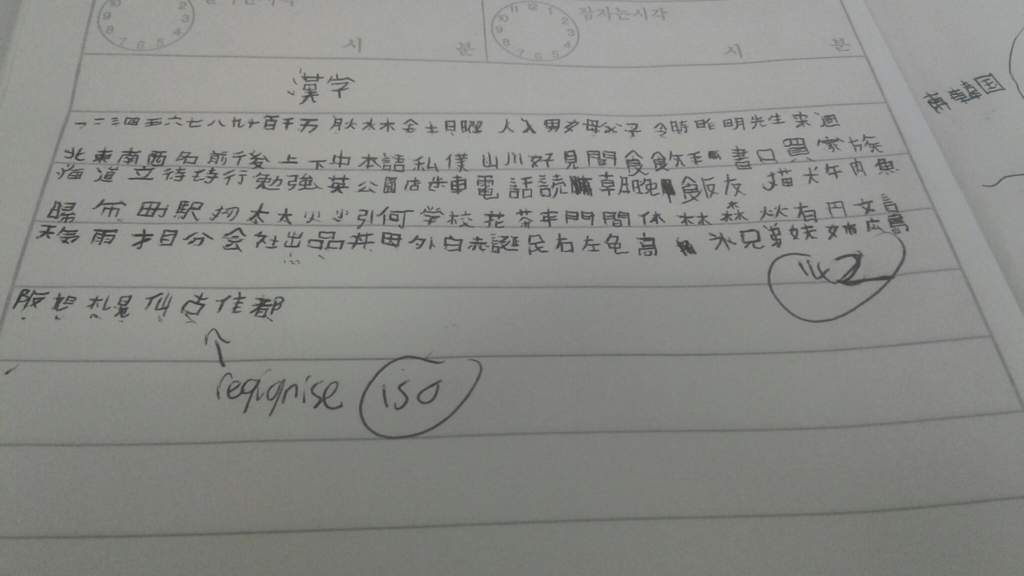 잠자는시각
시 분 시 분
漢字
一二三四五六七八九十百千万 月火水木金土日曜 人入男女母父子 今時昨明先生来週
北東南西名前後上下中本語私僕山川好見聞食飲手書口買家族
海道立待持行勉強英公園店歩車電話読朝晩飯友 猫犬牛肉魚
帰市町駅何学校花茶車門間休林森有円文言
天気雨才目分会社出品丼田外白赤誕民右左色高 氷兄弟妹姉広島
142
阪 札幌仙 佳都
reqignise 150
南韓国